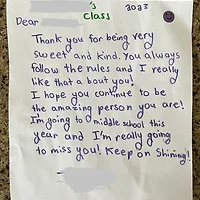 's
class
2023
Dear
Thank you for being very
sweet and kind. You always
follow the rules and I really
like that about you!
I hope you continue to be
the amazing person you are!
I'm going to middle school this
year and I'm really going
to miss you! Keep on Shining!